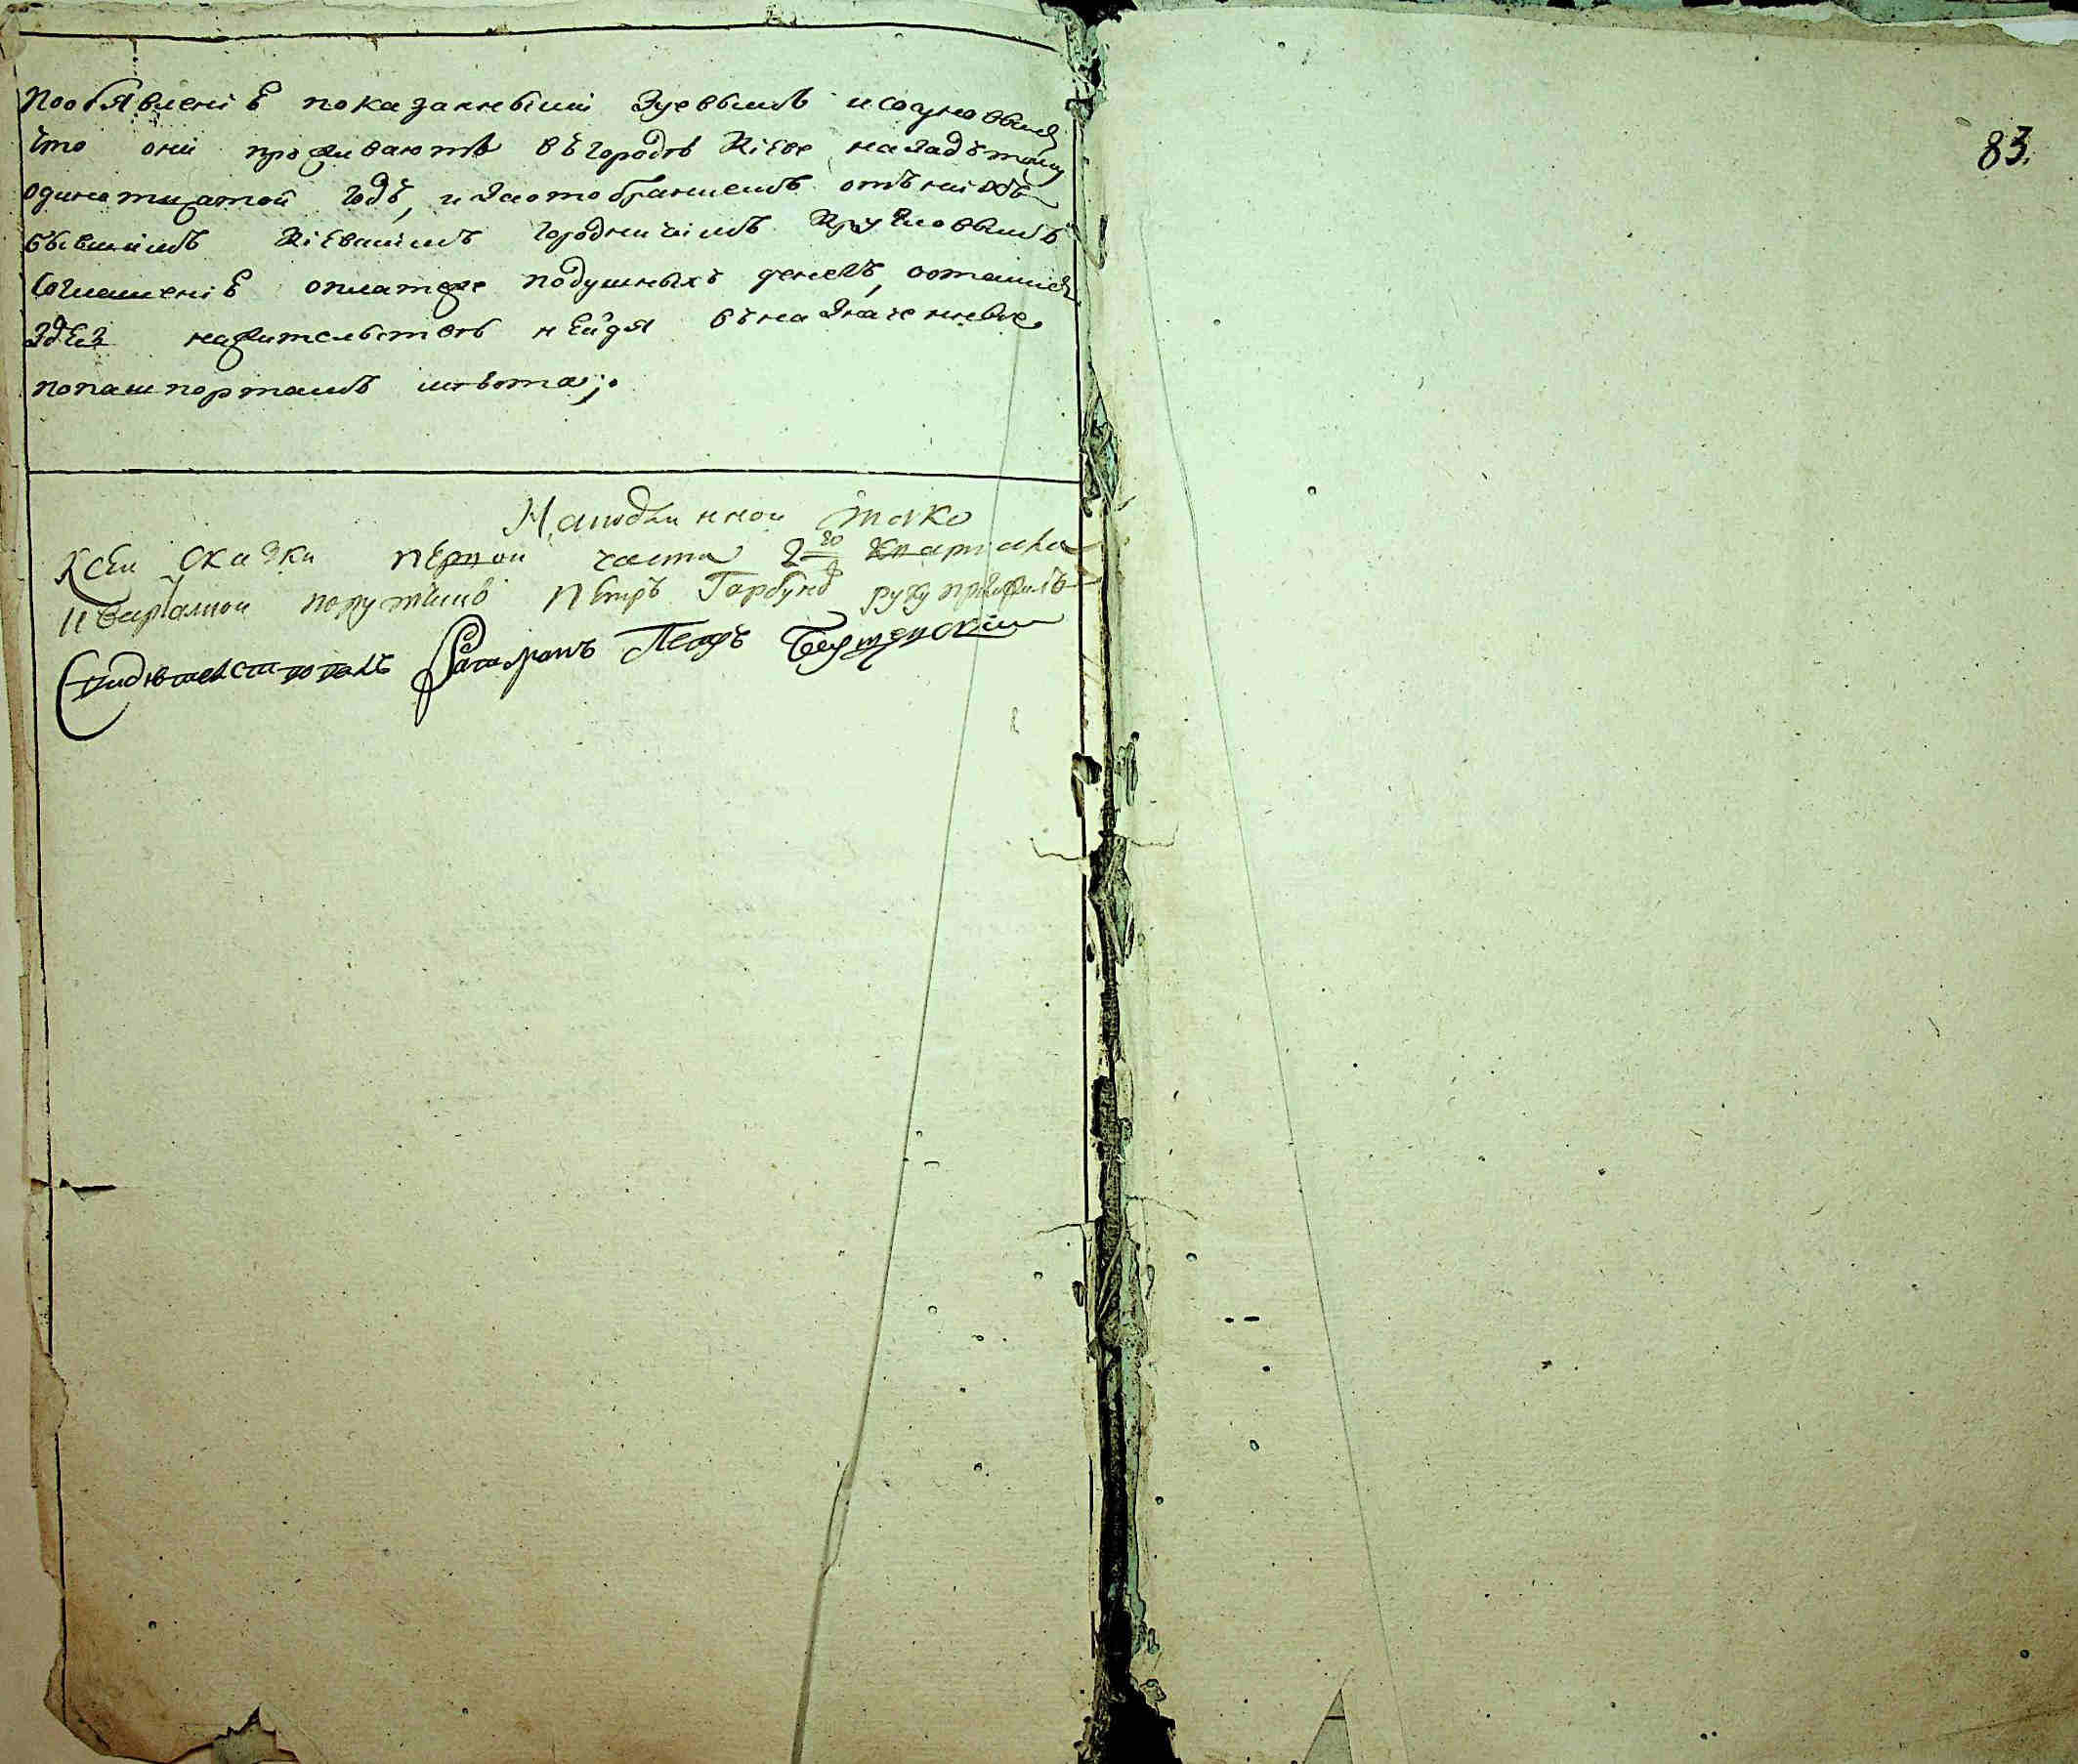 пообявленіѣ показаннымі Зуевымъ исоуновым
что они проживаютъ въгородѣ Кіеве назадъ тому
одинатцатой годъ, и заотобраниемъ отъ нихъ
бывшимъ Кіевскимъ городничимъ Кругловымъ
Согласиеніѣ оплатеже подушныхъ денегъ, осталися
здесь нажительствѣ нейдя въназначенные
попашпортамъ мѣста;
Наподлинной тако
Ксеи сказки первой части 2го квартала
кварталной поручикъ Петръ Горбунъ руку приложилъ
Ратманъ Петръ
83.